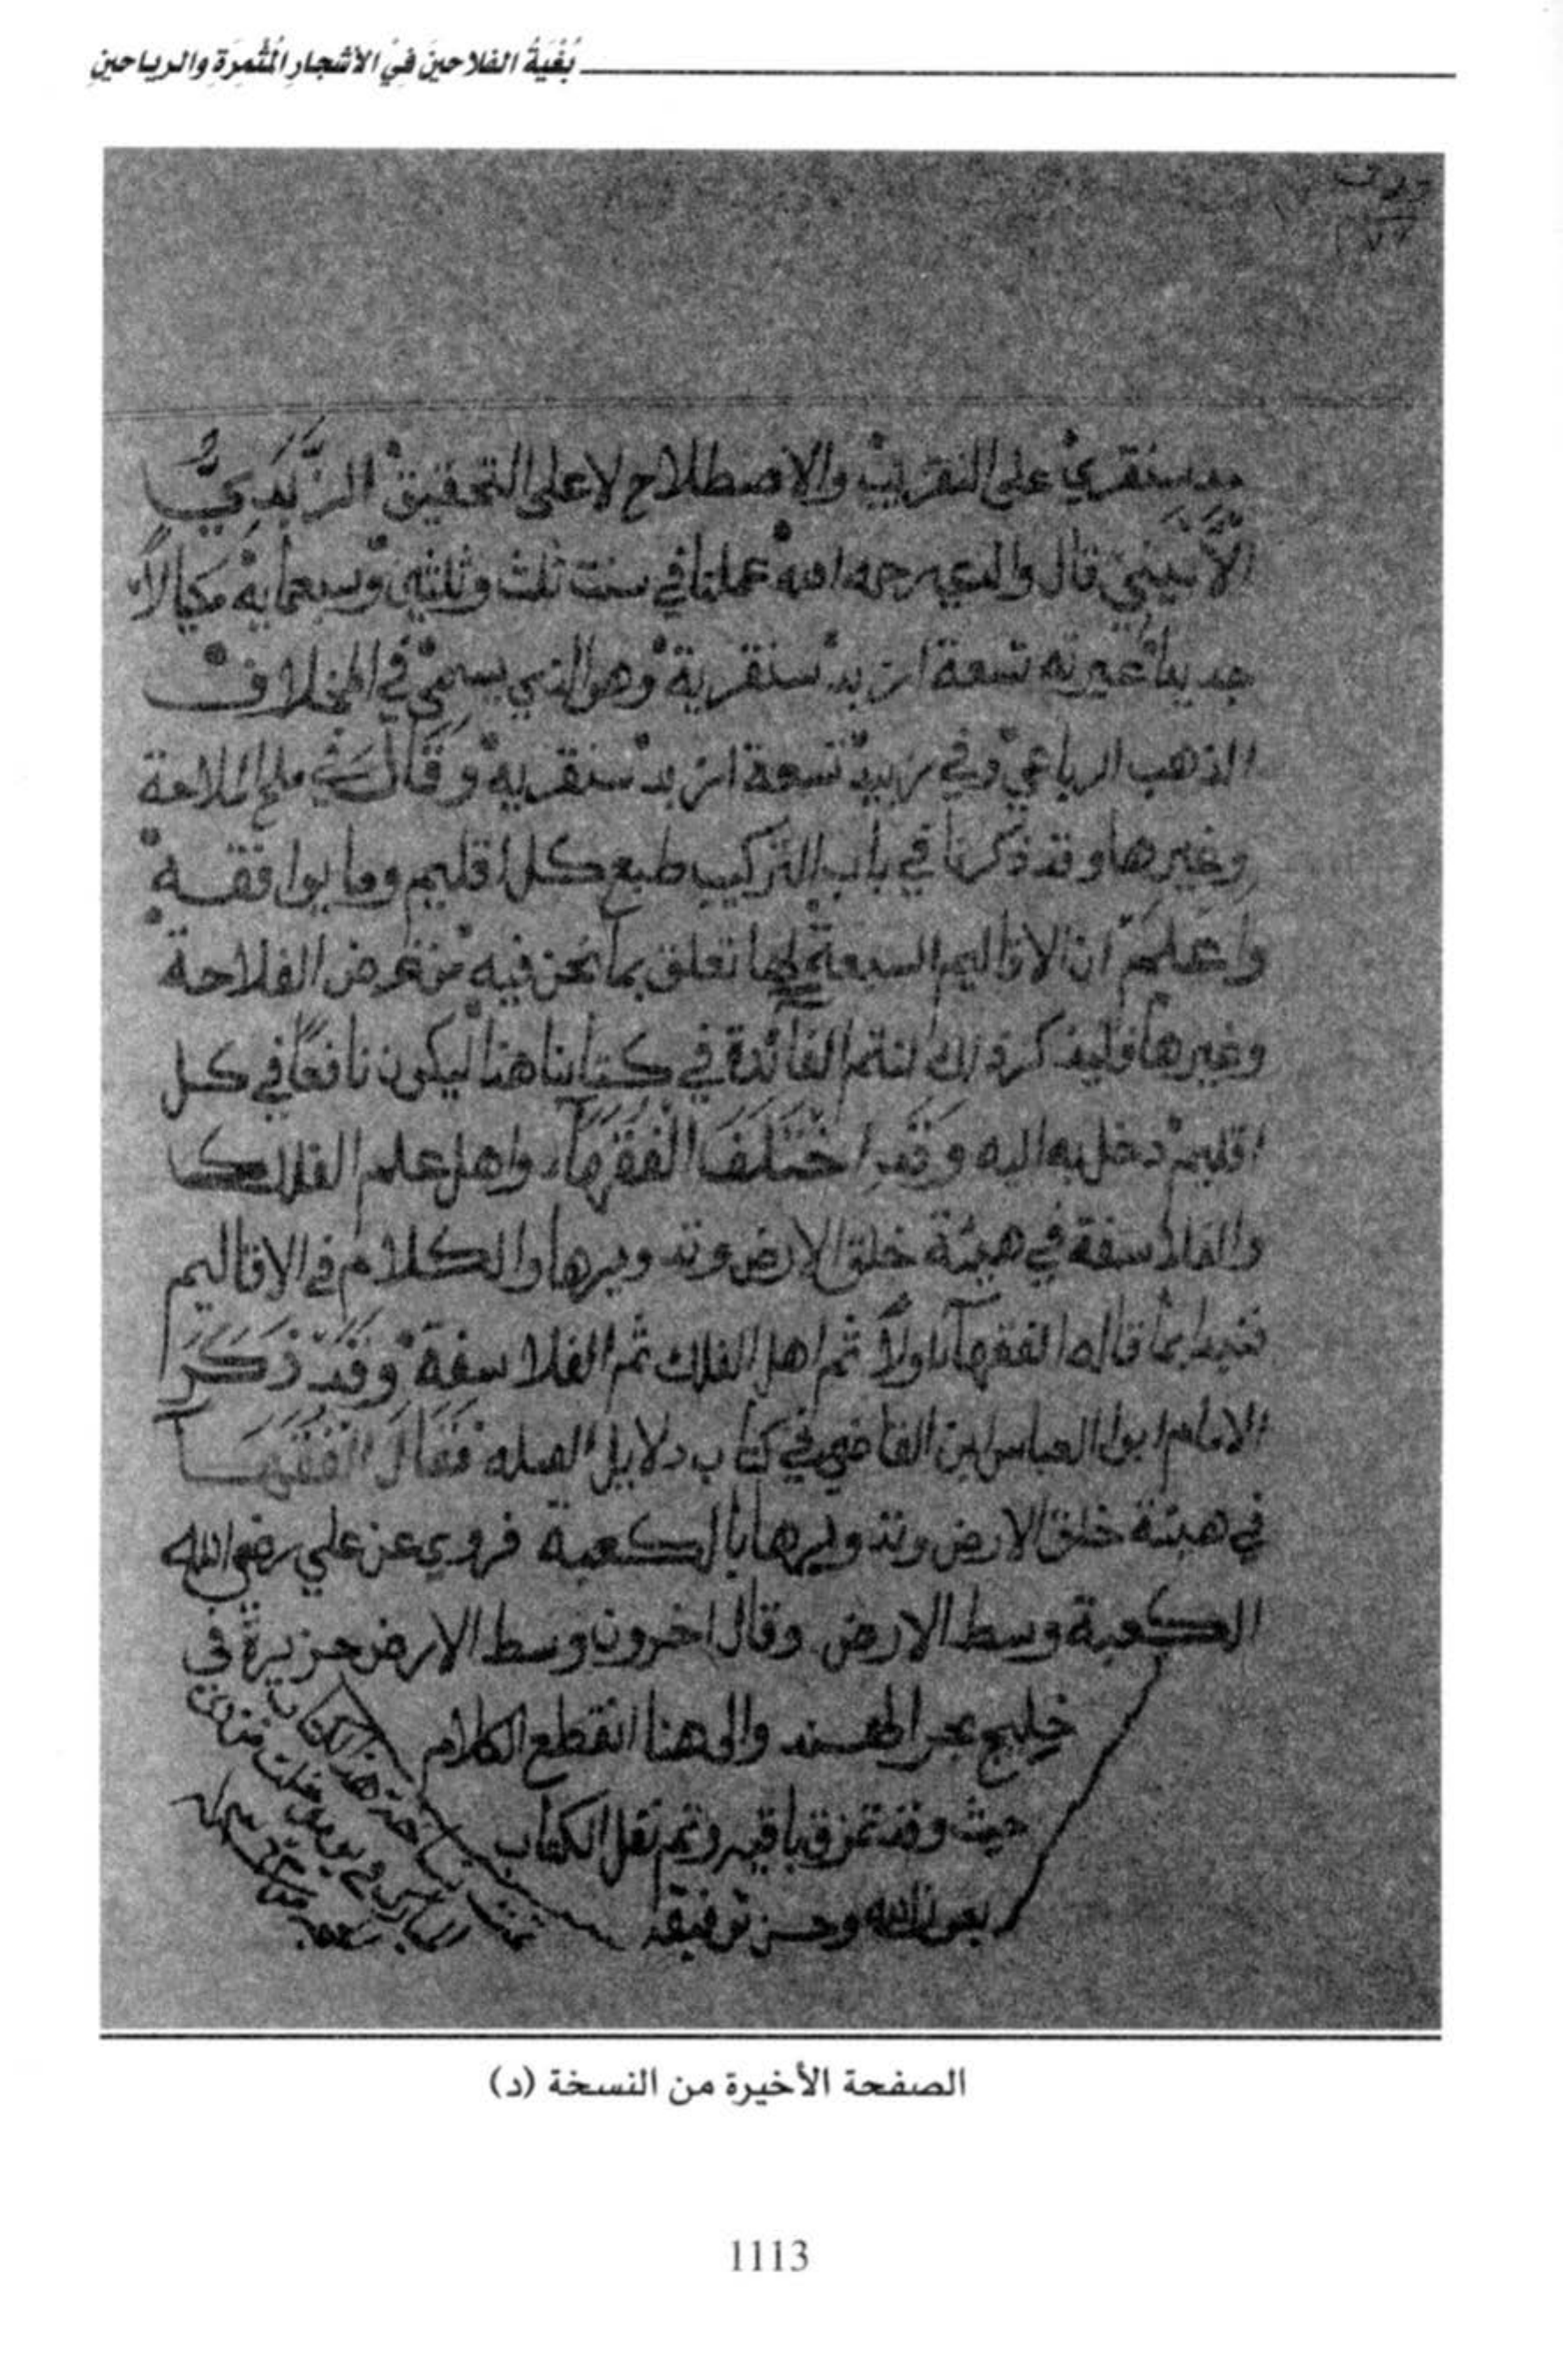 بُغْيَةُ الفلاحينَ فِيْ الأشجارِ المُثْمِرَةِ والرياحينِ
سنقري على التقريب والاصطلاح لا على التحقيق الزَّبَدِيُّ
قال والدي رحمه الله عملنا في سنت ثلث وثلثين وسبعماية مكيالاً
جديداً عبرته تسعة ازبد سنقرية وهو الذي يسمى في المخلاف
الذهب الرباعي وفي زبيد تسعة ازبد سنقرية وقال في ملح الملاحة
وغيرها وقد ذكرنا في باب التركيب طبع كل اقليم وما يوافقه
واعلم ان الاقاليم السبعة لها تعلق بما نحن فيه من غرض الفلاحة
وغيرها فليذكر ذلك لتتم الفائدة في كتابنا هذا ليكون نافعاً في كل
اقليم دخل به اليه وَقَدِ اخْتَلَفَ الْفُقَهَآء واهل علم الفلك
والفلاسفة في هيئة خلق الارض وتدويرها والكلام في الاقاليم
بما قاله الفقهآء اولاً ثم اهل الفلك ثم الفلاسفة وَقَدْ ذَكَرَ
الامام ابو العباس ابن القاضي في كتاب دلايل القبله فَقَالَ الْفُقَهَآ
في هيئة خلق الارض وتدويرها بالكعبة فروي عن علي رضي الله
الكعبة وسط الارض وقال اخرون وسط الارض جزيرة في
خليج بحر الهند والى هنا انقطع الكلام
حيث وقد تمزق باقيه وتم نقل الكتاب
بعون الله وحسن توفيقه
تمت هذا الكتاب
في يوم
الصفحة الأخيرة من النسخة (د)
1113